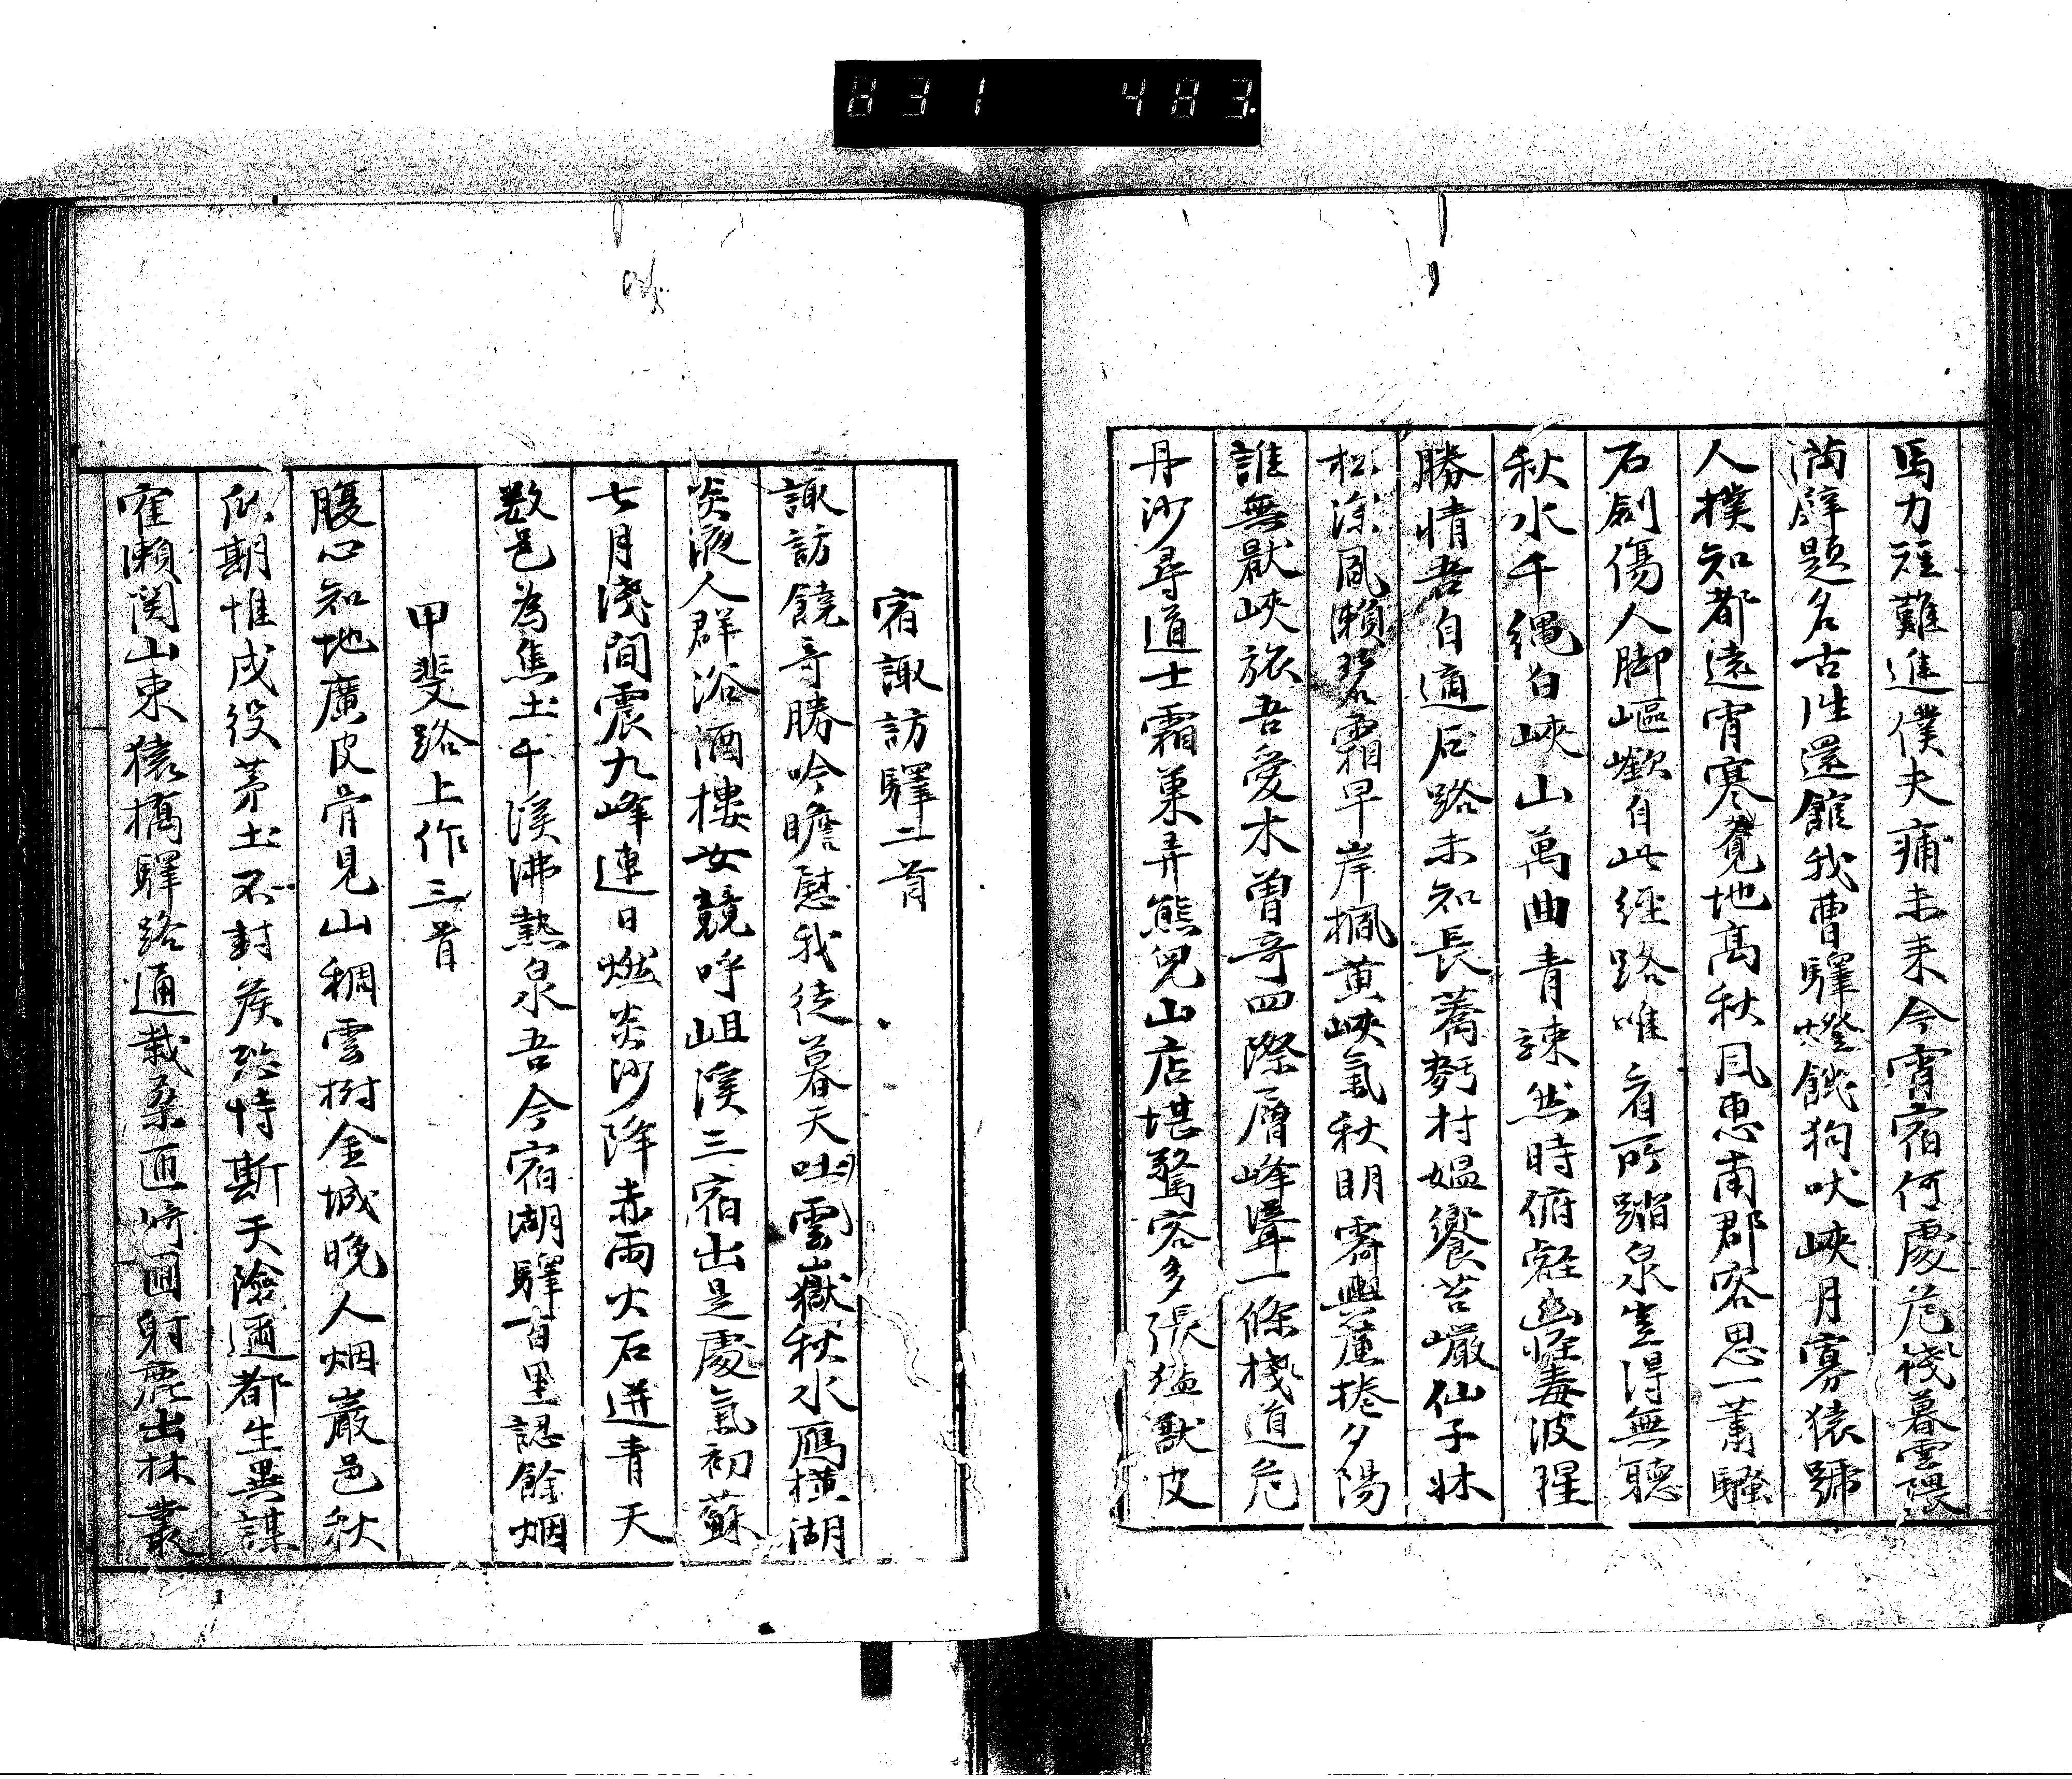 831 483.
馬力疲難進僕夫痡未来今宵宿何處危棧暮雲隈
満壁題名古往還館我曹驛燈餓狗吠峽月寡猿號
人撲知都遠宵寒覚地髙秋風惠南郡客思一蕭騒
石劍傷人脚嶇嶔自此經路唯看所蹈泉豈得無聽
秋水千繩白峽山萬曲青竦然時俯 幽怪毒波腥
勝情吾自適石路未知長蕎麪村媼饗苔巌仙子牀
松涼風瀬碧霜早岸楓黄峽氣秋明霽輿簾捲夕陽
誰無厭峽旅吾愛木曽奇四際層峰聳一條棧道危
丹沙尋道士霜菓弄熊児山店堪驚客多張猛獸皮
宿諏訪驛二首
諏訪饒奇勝吟瞻慰我徒暮天吐雲嶽秋水鴈横湖
炎液人群浴酒樓女競呼岨溪三宿出是處氣初蘇
七月淺間震九峰連日燃炎沙降赤雨火石迸青天
数邑為焦土千溪沸熱泉吾今宿湖驛百里認餘烟
甲斐路上作三首
腹心知地廣皮骨見山稠雲樹金城晩人烟巌邑秋
瓜期惟戍役茅土不封侯恐恃斯天險通都生異謀
寉瀬関山東猿橋驛路通栽桑匝 圃射鹿出林叢